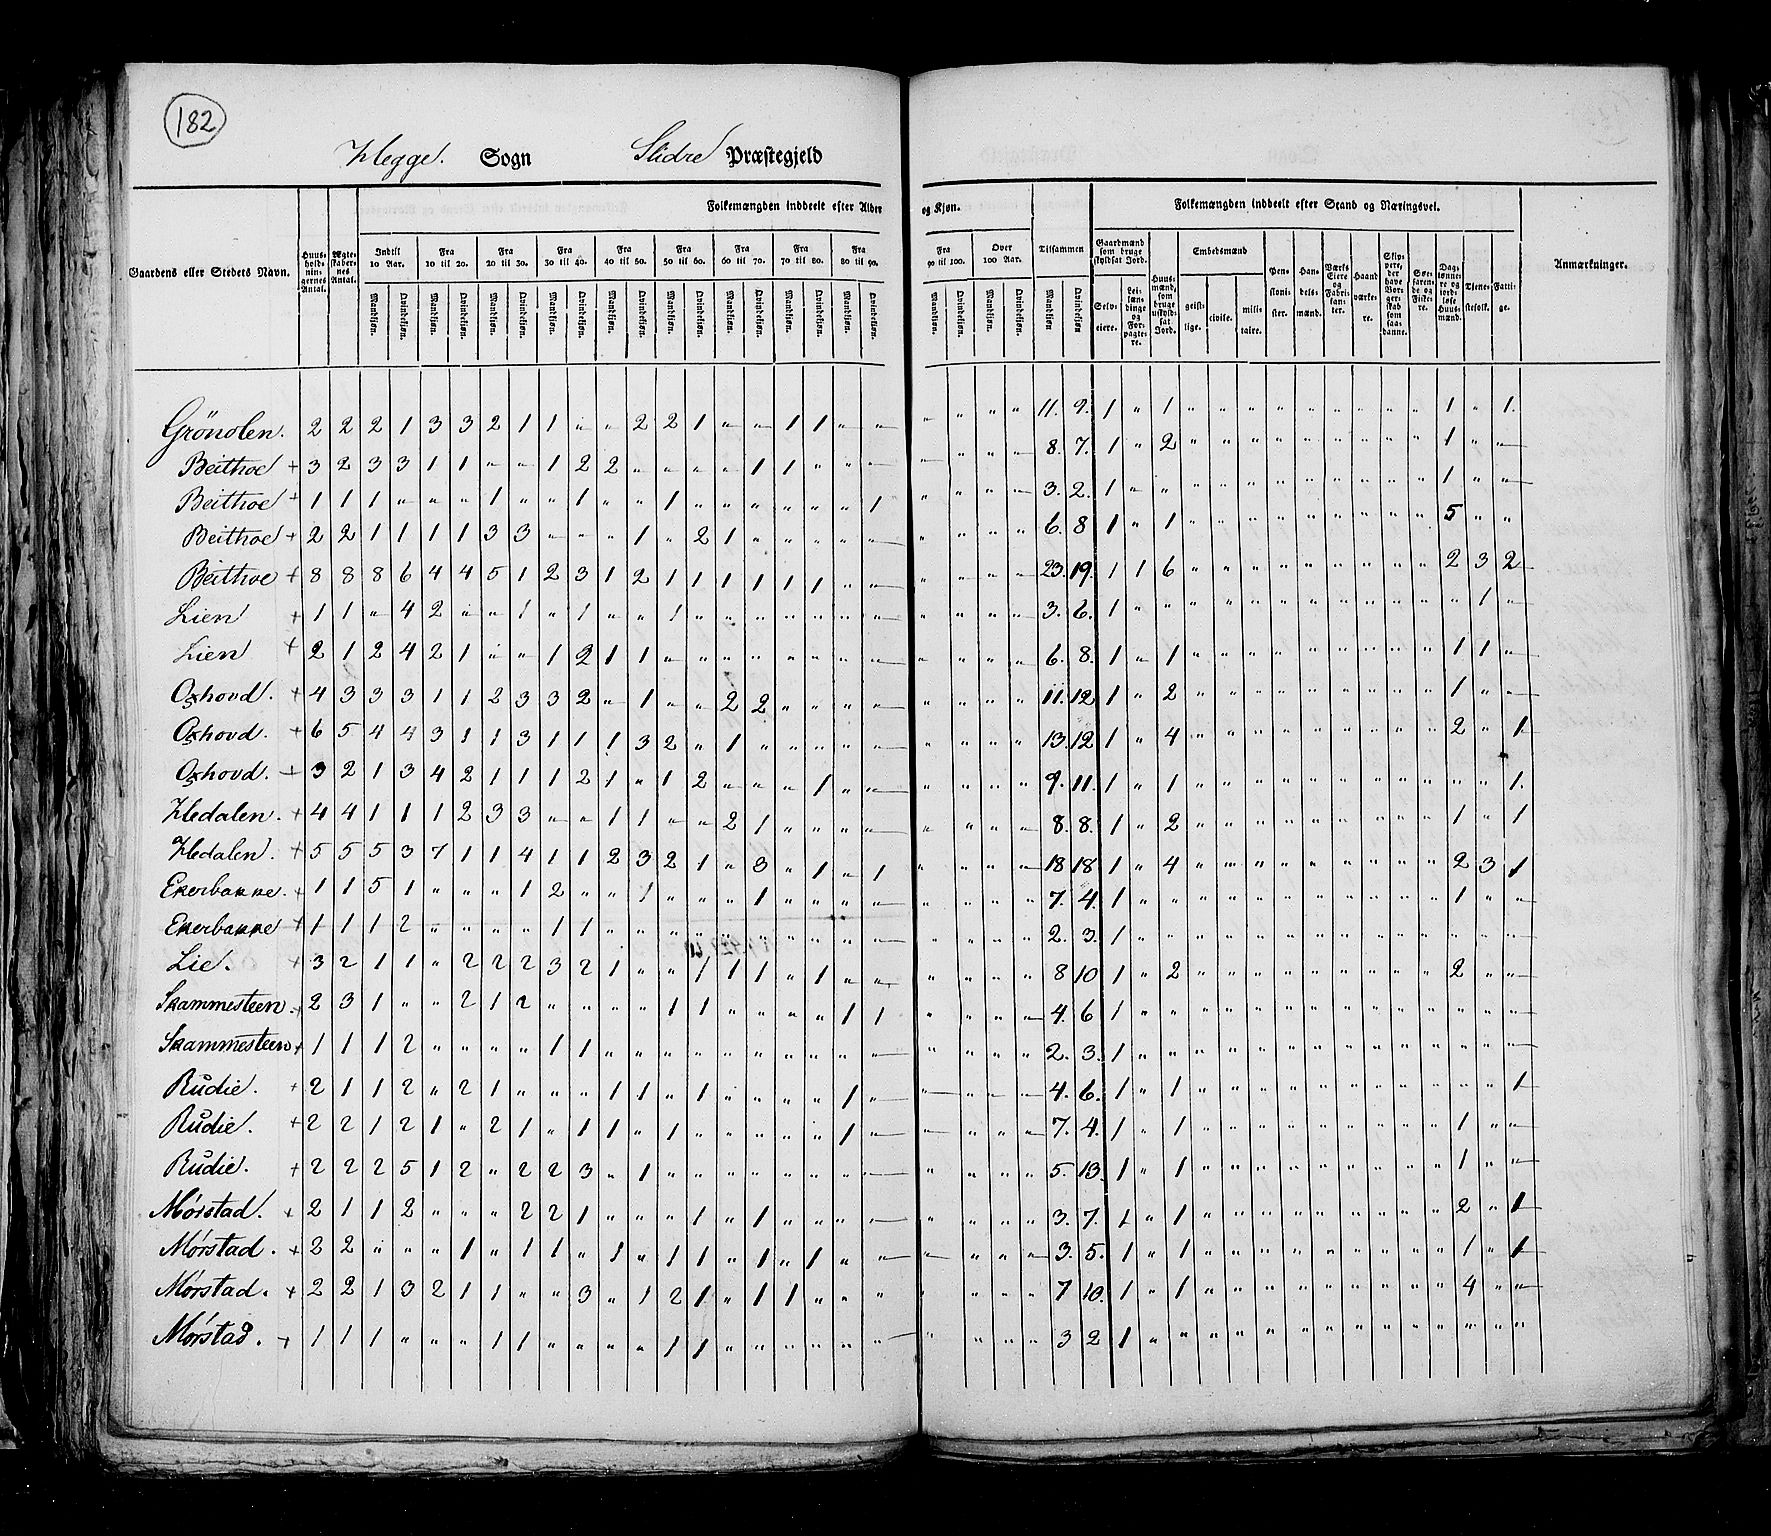 182
Hegge. Sogn Slidre Præstegjeld
Folkemængden inddeelt efter Alder og Kjøn.
Folkemængden inddeelt efter Stand og Næringsvei.
Gaardens eller Stedets Navn.
Huusholdningernes Antal.
Ægteskabernes Antal.
Indtil 10 Aar. Fra 10 til 20. Fra 20 til 30. Fra 30 til 40. Fra 40 til 50. Fra 50 til 60. Fra 60 til 70. Fra 70 til 80. Fra 80 til 90. Fra 90 til 100. Over 100 Aar. Tilsammen
Mandkjøn. Qvindekjøn.
Gaardmænd som bruge skyldsat Jord.
Selveiere.
Leilændinge og Forpagtere.
Huusmænd, som bruge uskyldsat Jord.
Embedsmænd
geistlige. civile. militaire.
Pensionister.
Handelsmænd.
Værks Eiere og Fabrikanter.
Haandværkere.
Skippere, der have Borgerskab som saadanne.
Søefarende og Fiskere.
Daglønnere og jordløse Huusmænd.
Tjenestefolk.
Fattige.
Anmærkninger.
Grönolen. 2 2 2 1 3 3 2 1 1 " " 2 2 1 " " 1 1 " " " " " " 11. 9. 1 " 1 " " " " " " " " " 1 " 1.
Beithoe + 3 2 3 3 1 1 " " 1 2 2 " " " " 1 1 " " " " " " " 8. 7. 1 " 2 " " " " " " " " " 1 " "
Beithoe + 1 1 1 " " " 1 " " 1 " " 1 " " " " " " 1 " " " " 3. 2. 1 " " " " " " " " " " " 1 " "
Beithoe + 2 2 1 1 1 1 3 3 " " " 1 " 2 1 " " " " " " " " " 6. 8 1 " 1 " " " " " " " " " 5 " "
Beithoe + 8 8 8 6 4 4 5 1 2 3 1 2 1 1 1 1 1 1 " " " " " " 23. 19. 1 1 6 " " " " " " " " " 2 3 2
Lien + 1 1 " 4 2 " " 1 " 1 " " 1 " " " " " " " " " " " 3. 6. 1 " " " " " " " " " " " " 1 "
Lien + 2 1 2 4 2 1 " " 1 2 1 1 " " " " " " " " " " " " 6. 8. 1 " 1 " " " " " " " " " 1 1 "
Oxhovd. + 4 3 3 3 1 1 2 3 3 2 " 1 " " 2 2 " " " " " " " " 11. 12 1 " 2 " " " " " " " " " 1 " "
Oxhovd. + 6 5 4 4 3 1 1 3 1 1 1 3 2 " 1 " " " " " " " " " 13. 12 1 " 4 " " " " " " " " " 2 " 1
Oxhovd. + 3 2 1 3 4 2 1 1 1 2 1 " 1 2 " " " 1 " " " " " " 9. 11. 1 " 1 " " " " " " " " " " " 1.
Hedalen. + 4 4 1 1 1 2 3 3 " " 1 1 " " 2 1 " " " " " " " " 8. 8. 1 " 2 " " " " " " " " " 1 " 1
Hedalen. + 5 5 5 3 7 1 1 4 1 1 2 3 2 1 " 3 " 1 " 1 " " " " 18 18 1 " 4 " " " " " " " " " 2 3 1
Ekerbakke. + 1 1 5 1 " " " 1 2 " " 1 " " " 1 " " " " " " " " 7. 4. 1 " " " " " " " " " " " 1 " "
Ekerbakke + 1 1 1 2 " " " " 1 1 " " " " " " " " " " " " " " 2. 3. 1 " " " " " " " " " " " " " "
Lie. + 3 2 1 1 " 2 2 2 3 2 1 " " 1 1 1 " 1 " " " " " " 8 10 1 " 2 " " " " " " " " " 2 " "
Skammesteen. + 2 3 1 " " 2 1 2 " " " " 1 1 " " " " 1 1 " " " " 4. 6 1 " " " " " " " " " " " " " "
Skammesteen + 1 1 1 2 " " " " 1 1 " " " " " " " " " " " " " " 2. 3. 1 " " " " " " " " " " " " " "
Rudie. + 2 1 1 2 " 2 1 " " " 1 1 " 1 " " " " 1 " " " " " 4. 6. 1 " 1 " " " " " " " " " " " 1
Rudie. + 2 2 1 2 1 " 2 1 " 1 1 " 1 " " " " " 1 " " " " " 7. 4. 1 " 1 " " " " " " " " " 1 " "
Rudie. + 2 2 2 5 1 2 " 2 2 3 " 1 " " " " " " " " " " " " 5. 13. 1 " 1 " " " " " " " " " 1 " "
Mørstad. + 2 1 1 2 " " " 2 2 1 " " " 1 " 1 " " " " " " " " 3. 7. 1 " 1 " " " " " " " " " 2 " 1
Mørstad. + 2 2 " " " 1 " 1 1 " 1 " 1 1 " 1 " 1 " " " " " " 3. 5. 1 " 1 " " " " " " " " " 1 " 1
Mørstad. + 2 2 1 3 2 1 1 " " 3 " 1 2 1 " 1 1 " " " " " " " 7 10. 1 " 1 " " " " " " " " " 4 " "
Mørstad. + 1 1 1 " " " 1 1 " " " " 1 1 " " " " " " " " " " 3 2 1 " " " " " " " " " " " " " "